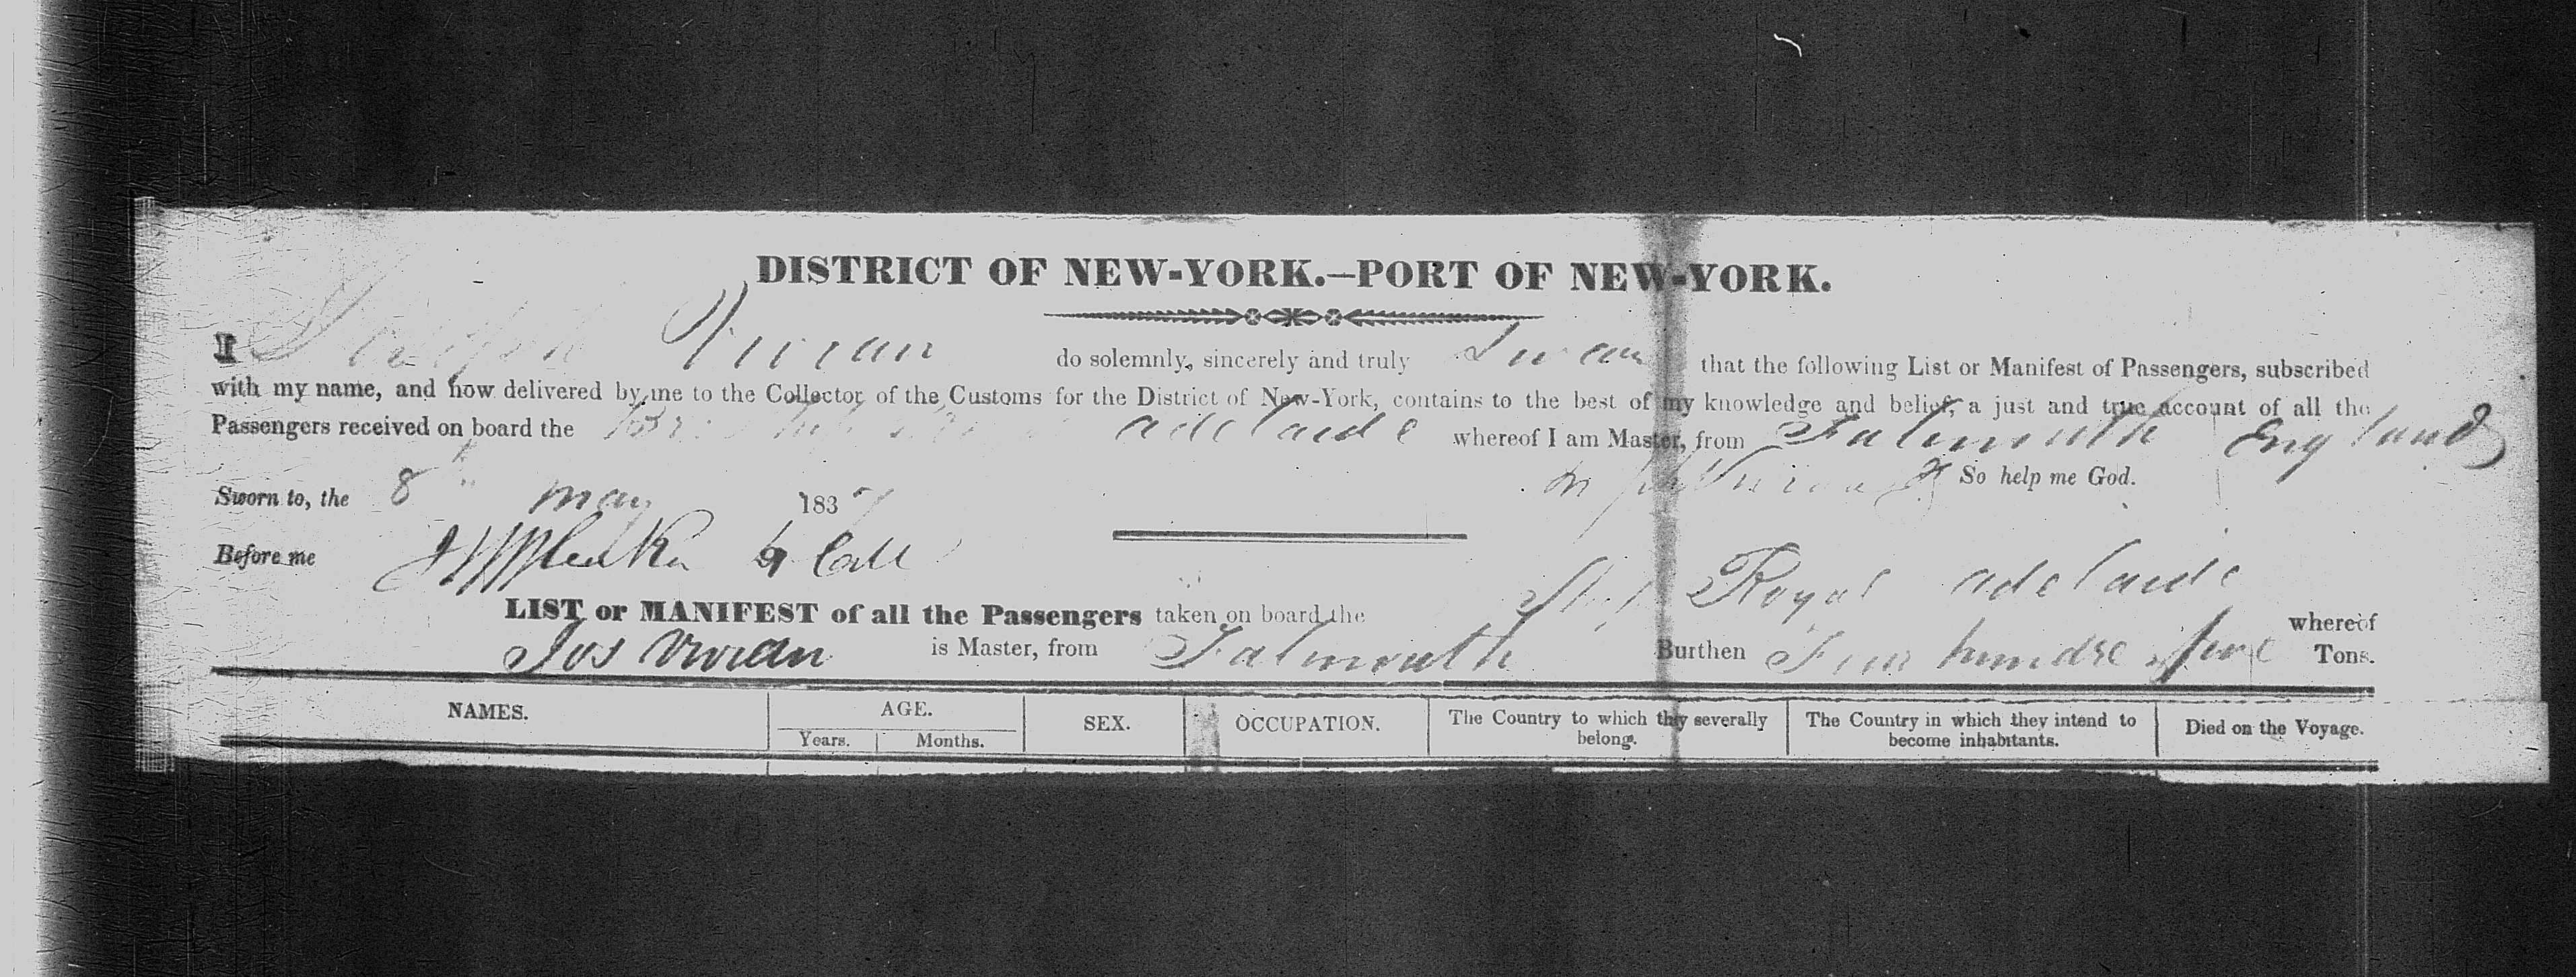 DISTRICT OF NEW-YORK.—PORT OF NEW-YORK.
I Joseph Vivian do solemnly, sincerely and truly Swear that the following List or Manifest of Passengers, subscribed
with my name, and now delivered by me to the Collector of the Customs for the District of New-York, contains to the best of my knowledge and belief, a just and true account of all the
Passengers received on board the Br. Ship adelaide whereof I am Master, from Falmouth England
Sworn to, the 8th may 1837 Vivian So help me God.
Before me
LIST or MANIFEST of all the Passengers taken on board the Ship Royal adelaide whereof
Jos Vivian is Master, from Falmouth Burthen hundred five Tons.
NAMES. AGE. SEX. OCCUPATION. The Country to which they severally belong. The Country in which they intend to become inhabitants. Died on the Voyage.
Years. Months.